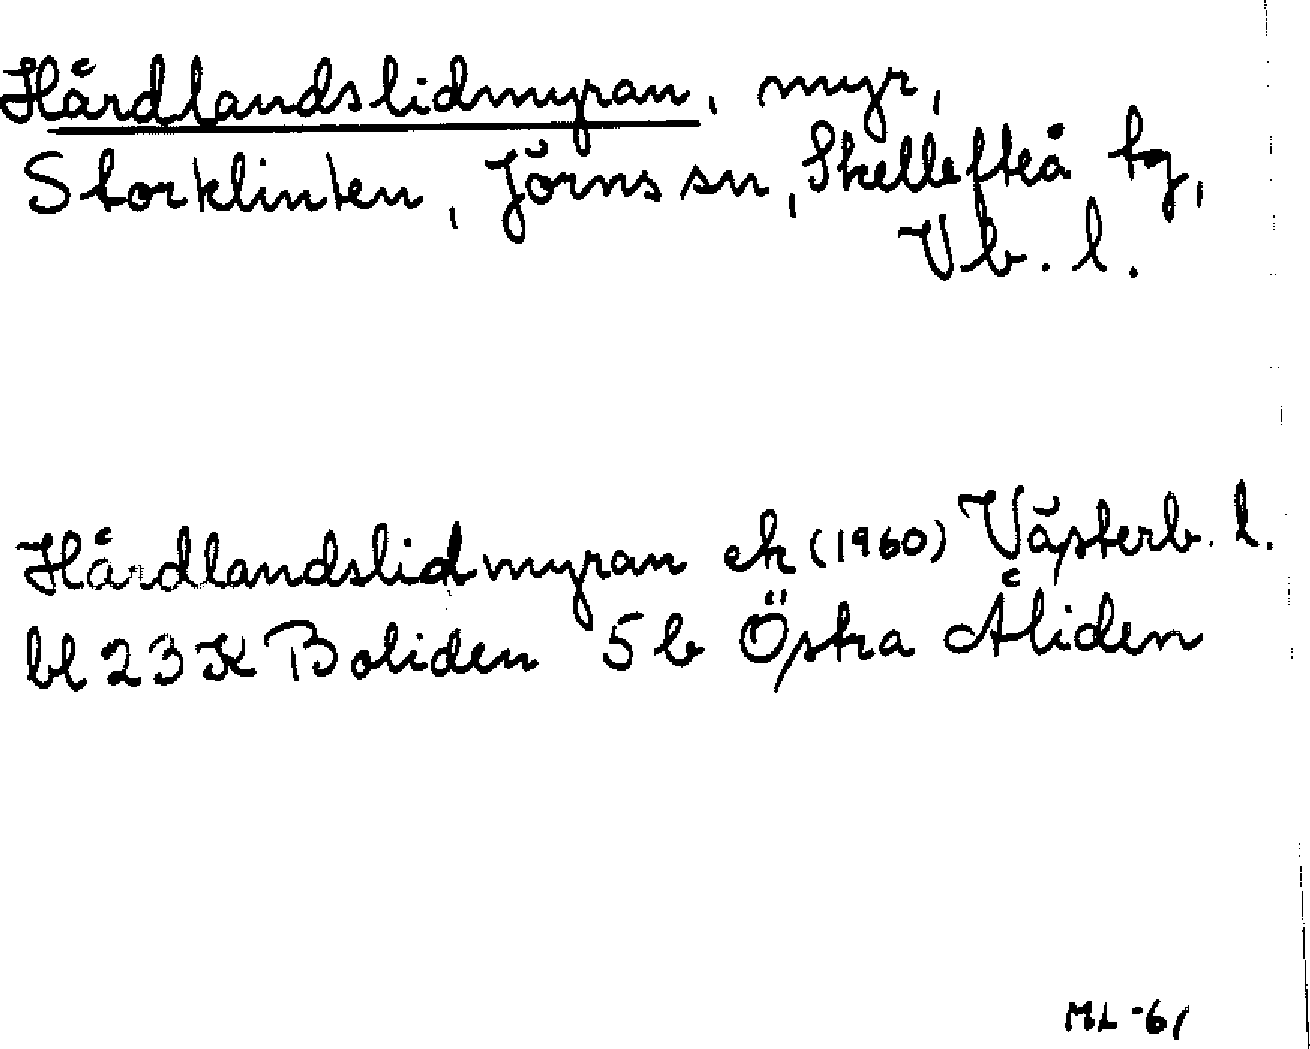 Hårdlandslidmyran, myr,
Storklinten, Jörns sn, Skellefteå tg,
Vb. l.
Hårdlandslidmyran ek (1960) Västerb. l.
bl 23 K Boliden 5 b Östra Åliden
ML -61